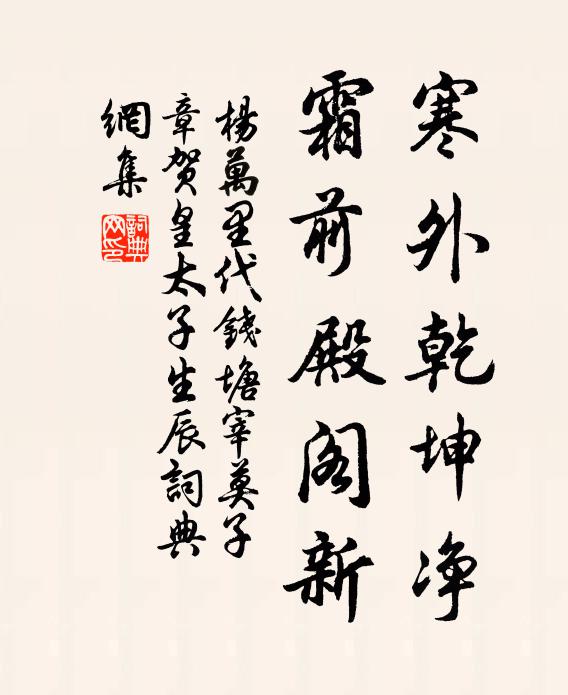 寒外乾坤净
霜前殿阁新
楊萬里代錢塘宰莫子
章贺皇太子生辰詞典
網集
詞典
网印